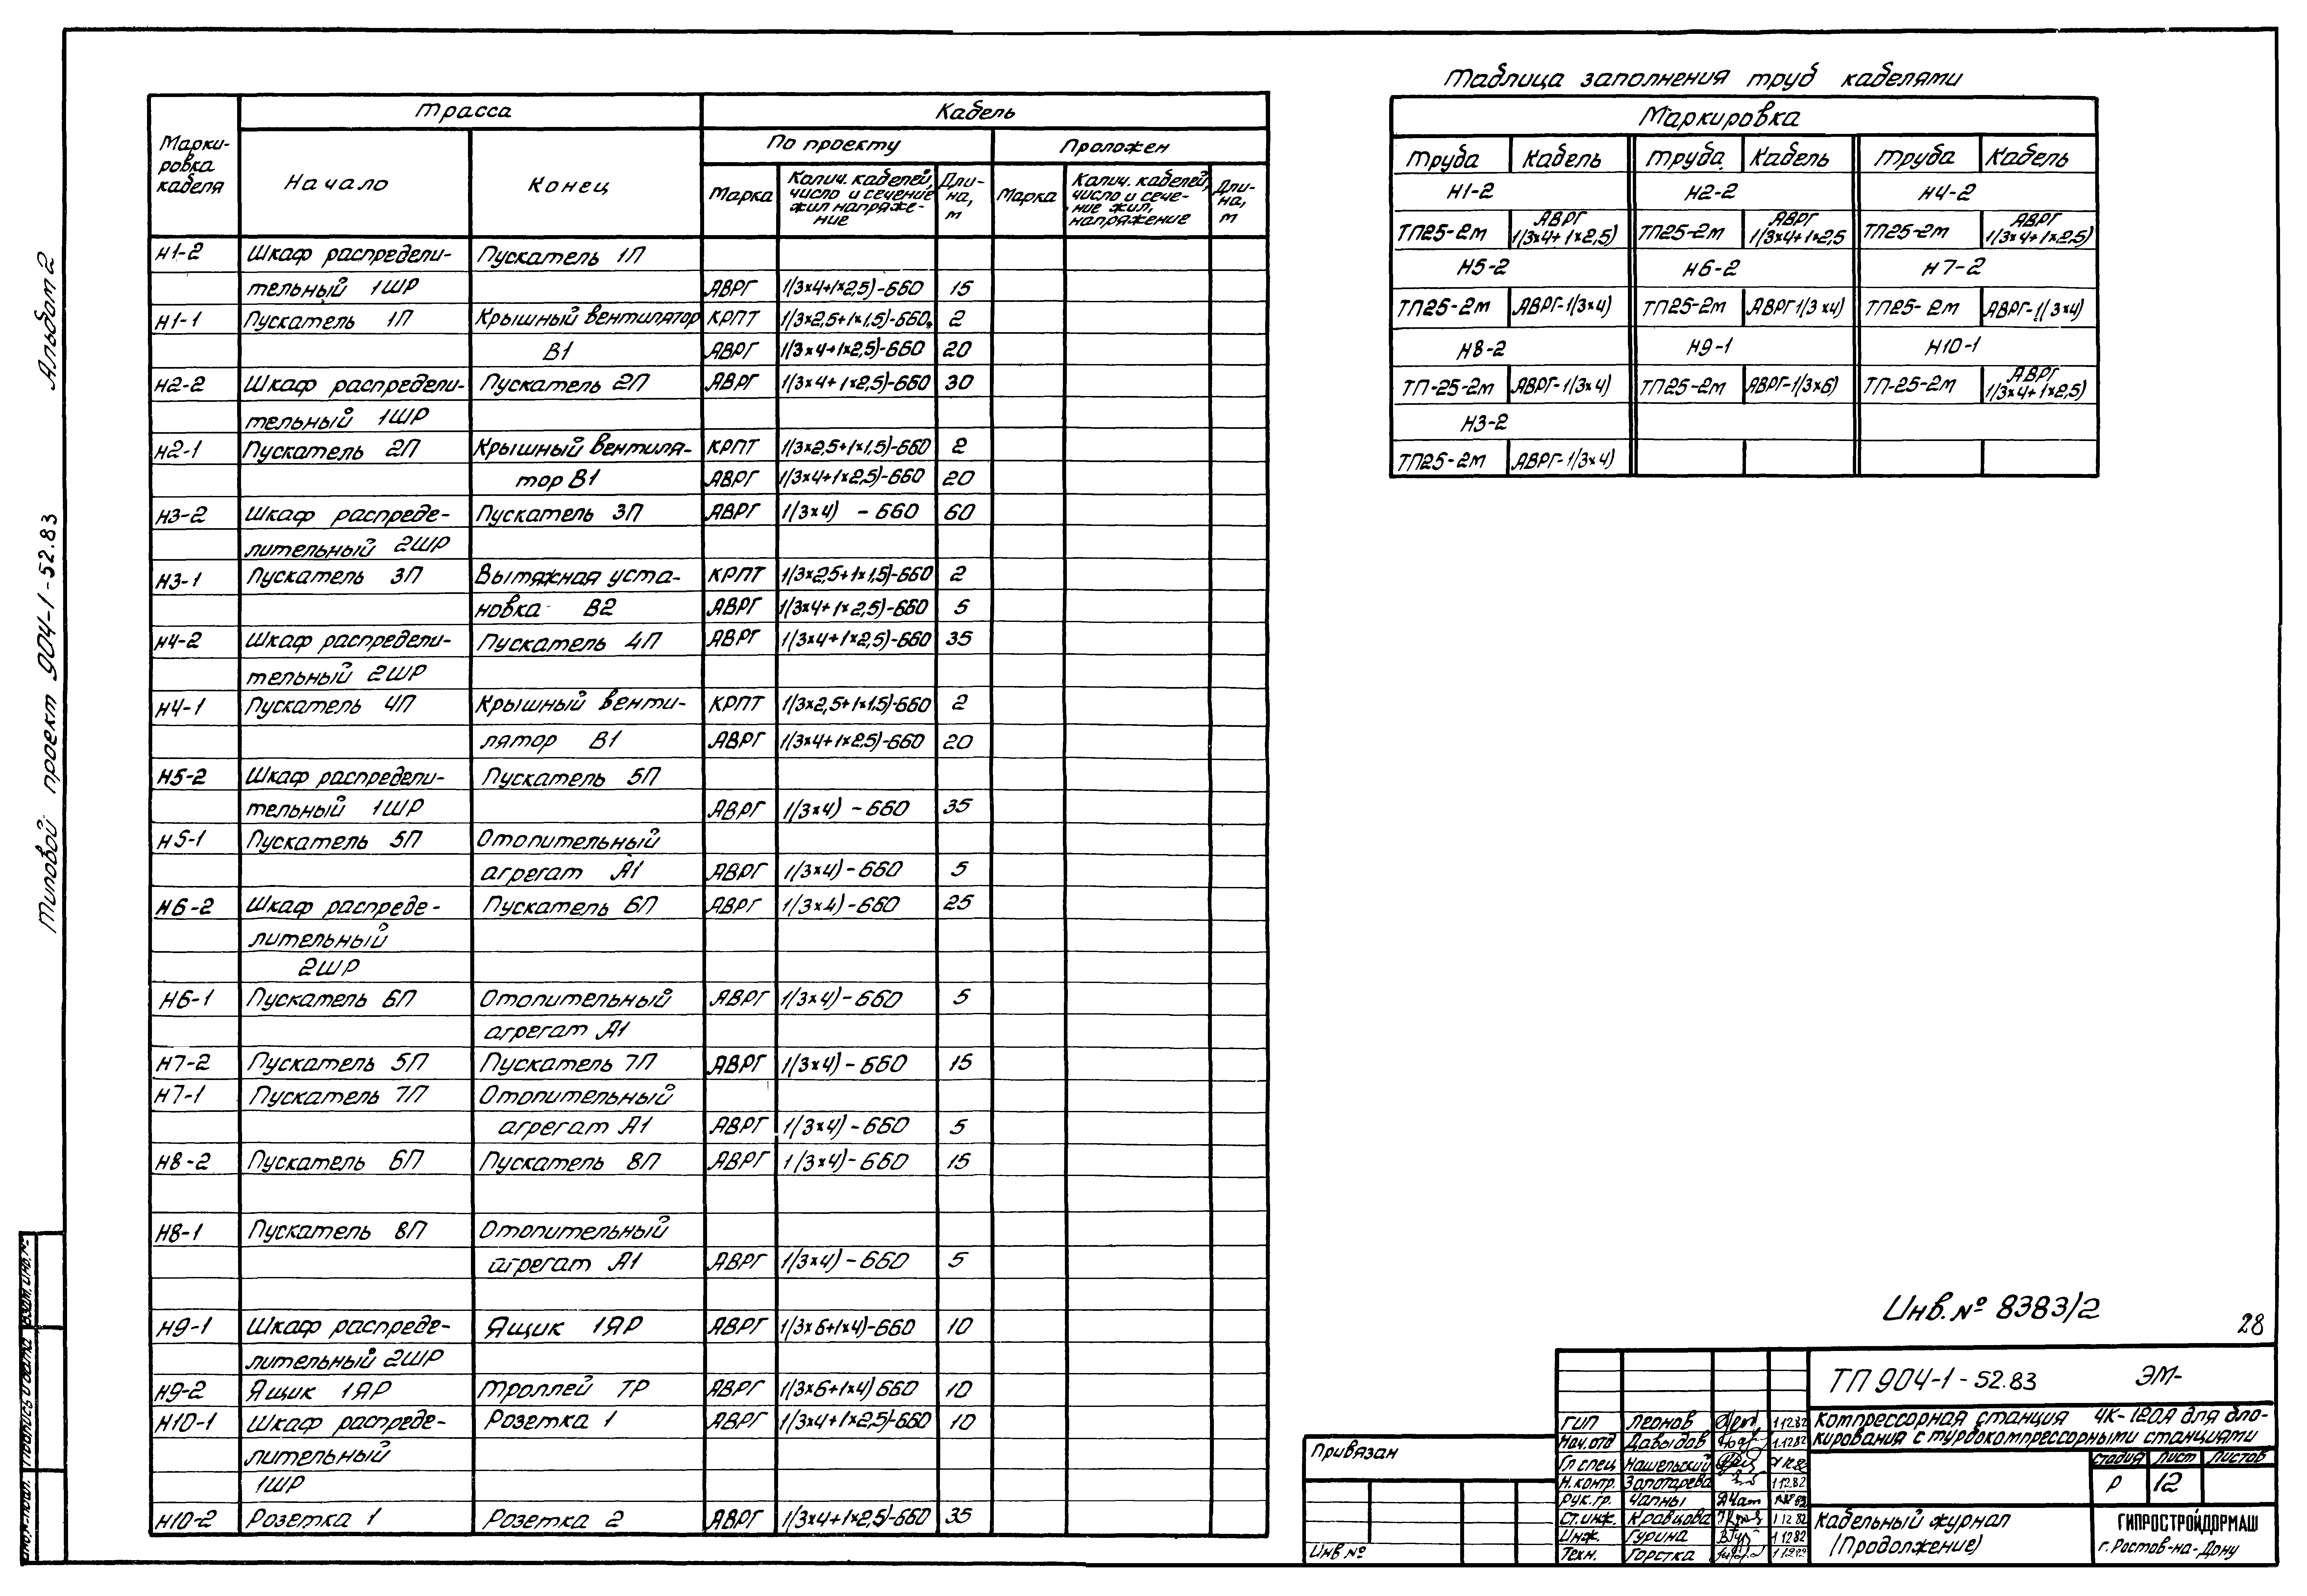 Альбом 2
Типовой проект 904-1-52.83
Марки-
ровка
кабеля
Трасса
Кабель
Начало
Конец
По проекту
Проложен
Марка
Колич. кабелей,
число и сечение
жил напряже-
ние
Дли-
на,
м
Марка
Колич. кабелей,
число и сече-
ние жил,
напряжение
Дли-
на,
м
Н1-2 Шкаф распредели- Пускатель 1П
тельный 1ШР АВРГ 1(3×4+1×2,5)-660 15
Н1-1 Пускатель 1П Крышный вентилятор КРПТ 1(3×2,5+1×1,5)-660 2
В1 АВРГ 1(3×4+1×2,5)-660 20
Н2-2 Шкаф распредели- Пускатель 2П АВРГ 1(3×4+1×2,5)-660 30
тельный 1ШР
Н2-1 Пускатель 2П Крышный вентиля- КРПТ 1(3×2,5+1×1,5)-660 2
тор В1 АВРГ 1(3×4+1×2,5)-660 20
Н3-2 Шкаф распреде- Пускатель 3П АВРГ 1(3×4) - 660 60
лительный 2ШР
Н3-1 Пускатель 3П Вытяжная уста- КРПТ 1(3×2,5+1×1,5)-660 2
новка В2 АВРГ 1(3×4+1×2,5)-660 5
Н4-2 Шкаф распредели- Пускатель 4П АВРГ 1(3×4+1×2,5)-660 35
тельный 2ШР
Н4-1 Пускатель 4П Крышный венти- КРПТ 1(3×2,5+1×1,5)-660 2
лятор В1 АВРГ 1(3×4+1×2,5)-660 20
Н5-2 Шкаф распредели- Пускатель 5П
тельный 1ШР АВРГ 1(3×4) - 660 35
Н5-1 Пускатель 5П Отопительный
агрегат А1 АВРГ 1(3×4) - 660 5
Н6-2 Шкаф распреде- Пускатель 6П АВРГ 1(3×4)-660 25
лительный
2ШР
Н6-1 Пускатель 6П Отопительный АВРГ 1(3×4)-660 5
агрегат А1
Н7-2 Пускатель 5П Пускатель 7П АВРГ 1(3×4) - 660 15
Н7-1 Пускатель 7П Отопительный
агрегат А1 АВРГ 1(3×4) - 660 5
Н8-2 Пускатель 6П Пускатель 8П АВРГ 1(3×4)-660 15
Н8-1 Пускатель 8П Отопительный
агрегат А1 АВРГ 1(3×4) - 660 5
Н9-1 Шкаф распреде- Ящик 1ЯР АВРГ 1(3×6+1×4)-660 10
лительный 2ШР
Н9-2 Ящик 1ЯР Троллей ТР АВРГ 1(3×6+1×4) 660 10
Н10-1 Шкаф распреде- Розетка 1 АВРГ 1(3×4+1×2,5)-660 10
лительный
1ШР
Н10-2 Розетка 1 Розетка 2 АВРГ 1(3×4+1×2,5)-660 35
Таблица заполнения труб кабелями
Маркировка
Труба Кабель Труба Кабель Труба Кабель
Н1-2 Н2-2 Н4-2
ТП25-2м АВРГ 1(3×4+1×2,5) ТП25-2м АВРГ 1(3×4+1×2,5 ТП25-2м АВРГ 1(3×4+1×2,5)
Н5-2 Н6-2 Н7-2
ТП25-2м АВРГ-1(3×4) ТП25-2м АВРГ 1(3×4) ТП25-2м АВРГ-1(3×4)
Н8-2 Н9-1 Н10-1
ТП-25-2м АВРГ-1(3×4) ТП25-2м АВРГ-1(3×6) ТП-25-2м АВРГ 1(3×4+1×2,5)
Н3-2
ТП25-2м АВРГ-1(3×4)
Инв.№ 8383/2
28
ТП 904-1-52.83 ЭМ-
Компрессорная станция 4К-120А для бло-
кирования с турбокомпрессорными станциями
Стадия Лист Листов
Р 12
Кабельный журнал
(Продолжение)
ГИПРОСТРОЙДОРМАШ
г. Ростов-на-Дону
ГИП Леонов 11282
Нач.отд Давыдов 1.1282
Гл спец Нашельский
Н.контр. Золотарева 11282
Рук.гр. Чапны
Ст.инж. Кравцова 11282
Инж. Гурина 11282
Техн. Горстка
Привязан
Инв №
Взам. инв. №
Подпись и дата
Инв.№ подл.